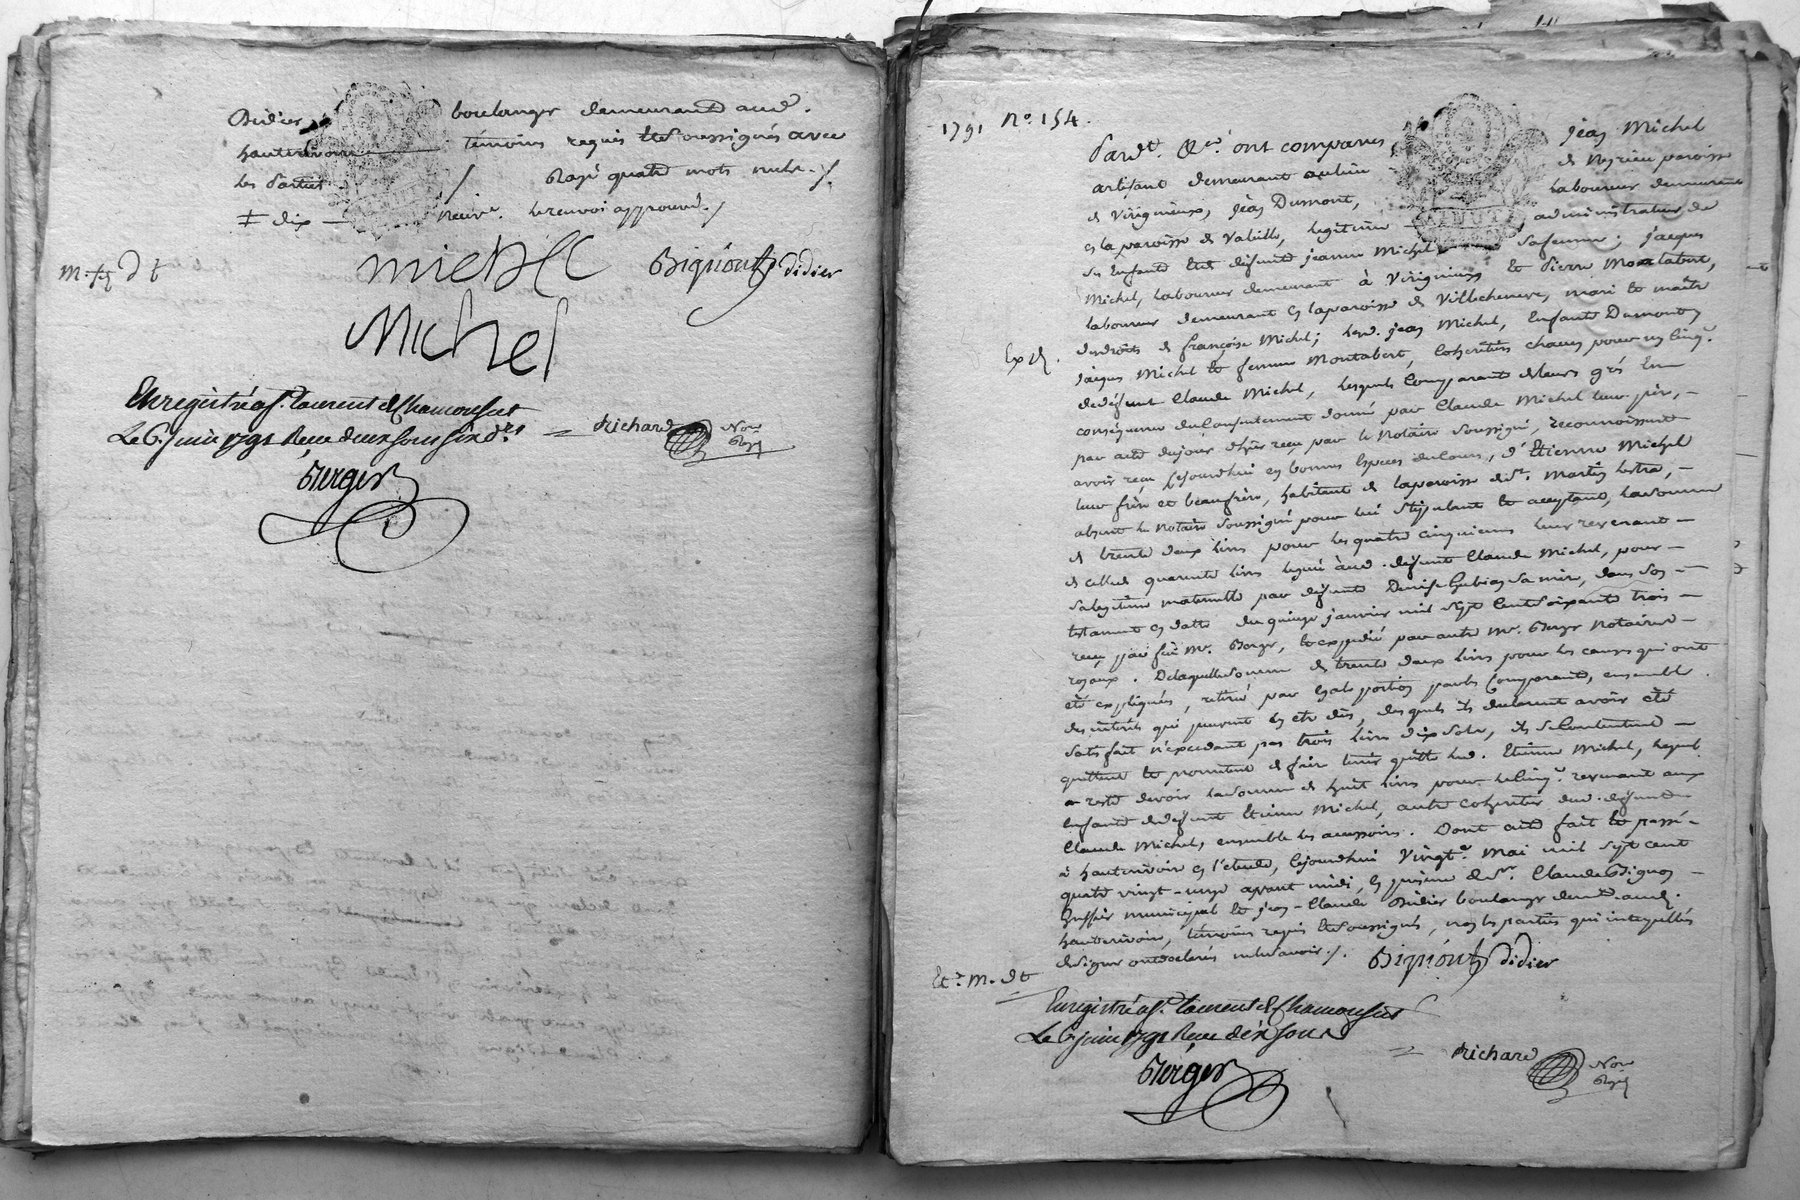 Didier, boulanger demeurant aud.
hauterivoire témoins requis et soussignés avec
les parties ./. Rayé quatre mots nuls ./.
‡ dix — neuve. le renvoi approuvé ./
michel Bigniont didier
Michel
Enregistré à St. laurent de Chamousset
Le 6. juin 1791 Reçu deux sous six drs
Berger
= Richard Nore Royal
1791 No. 154.
Pardt. &ca. ont comparus, jean Michel
artisant demeurant au lieu de neyrieu paroisse
de Virigneux, jean Dumont, laboureur demeurant
en la paroisse de Valeille, legitime administrateur de
ses enfants et de défunte jeanne Michel sa femme; jacques
Michel, laboureur demeurant à Virigneux et Pierre Montabert,
laboureur demeurant en la paroisse de Villechenève, mari et maître
des droits de françoise Michel; lesd. jean Michel, enfants Dumont,
jacques Michel et femme Montabert, cohéritiers chacun pour un cinqe.
de défunt Claude Michel, lesquels comparants de leurs grés en
conséquence du consentement donné par Claude Michel leur père,
par acte du jour d'hier reçu par le notaire soussigné, reconnoissent
avoir reçu cejourd'hui en bonnes espèces du cours, d'Etienne Michel
leur frère et beaufrère, habitant de la paroisse de St. Martin lestra,
absent le notaire soussigné pour lui stipulant et acceptant, la somme
de trente deux livres pour les quatre cinquiemes leur revenant
de celle de quarante livres legué aud. défunt Claude Michel, pour
sa légitime maternelle par défunte Denise sa mère, dans son
testament en datte du quinze janvier mil sept cent soixante trois
reçu par feu Me. Berger, et expédié par autre Me. Berger notaires
royaux. De laquelle somme de trente deux livres pour les causes qui ont
été expliqués, retiré par egale portion par les comparants, ensemble
des intérêts qui peuvent en etre dus, desquels ils declarent avoir été
satisfait n'excedant pas trois livres dix sols, ils se contentent
quittent et promettent de faire tenir quitte led. Etienne Michel, lequel
a resté devoir la somme de huit livres pour le cinqe. revenant aux
enfants de défunt Etienne Michel, autre cohéritier dud. défunt
Claude Michel, ensemble les accessoires. Dont acte fait et passé
à hauterivoire en l'etude, cejourd'hui vingte. Mai mil sept cent
quatre vingt-onze avant midi, en présence de Sr. Claude Bignon
greffier municipal et jean-Claude Didier boulanger demt. audit
hauterivoire, témoins requis et soussignés, non les parties qui interpellés
de signer ont déclarés ne le savoir ./. Bigniont didier
Enregistré à St. laurent de Chamousset
Le 6 juin 1791 Reçu dix sous
Berger
= Richard Nore Royal